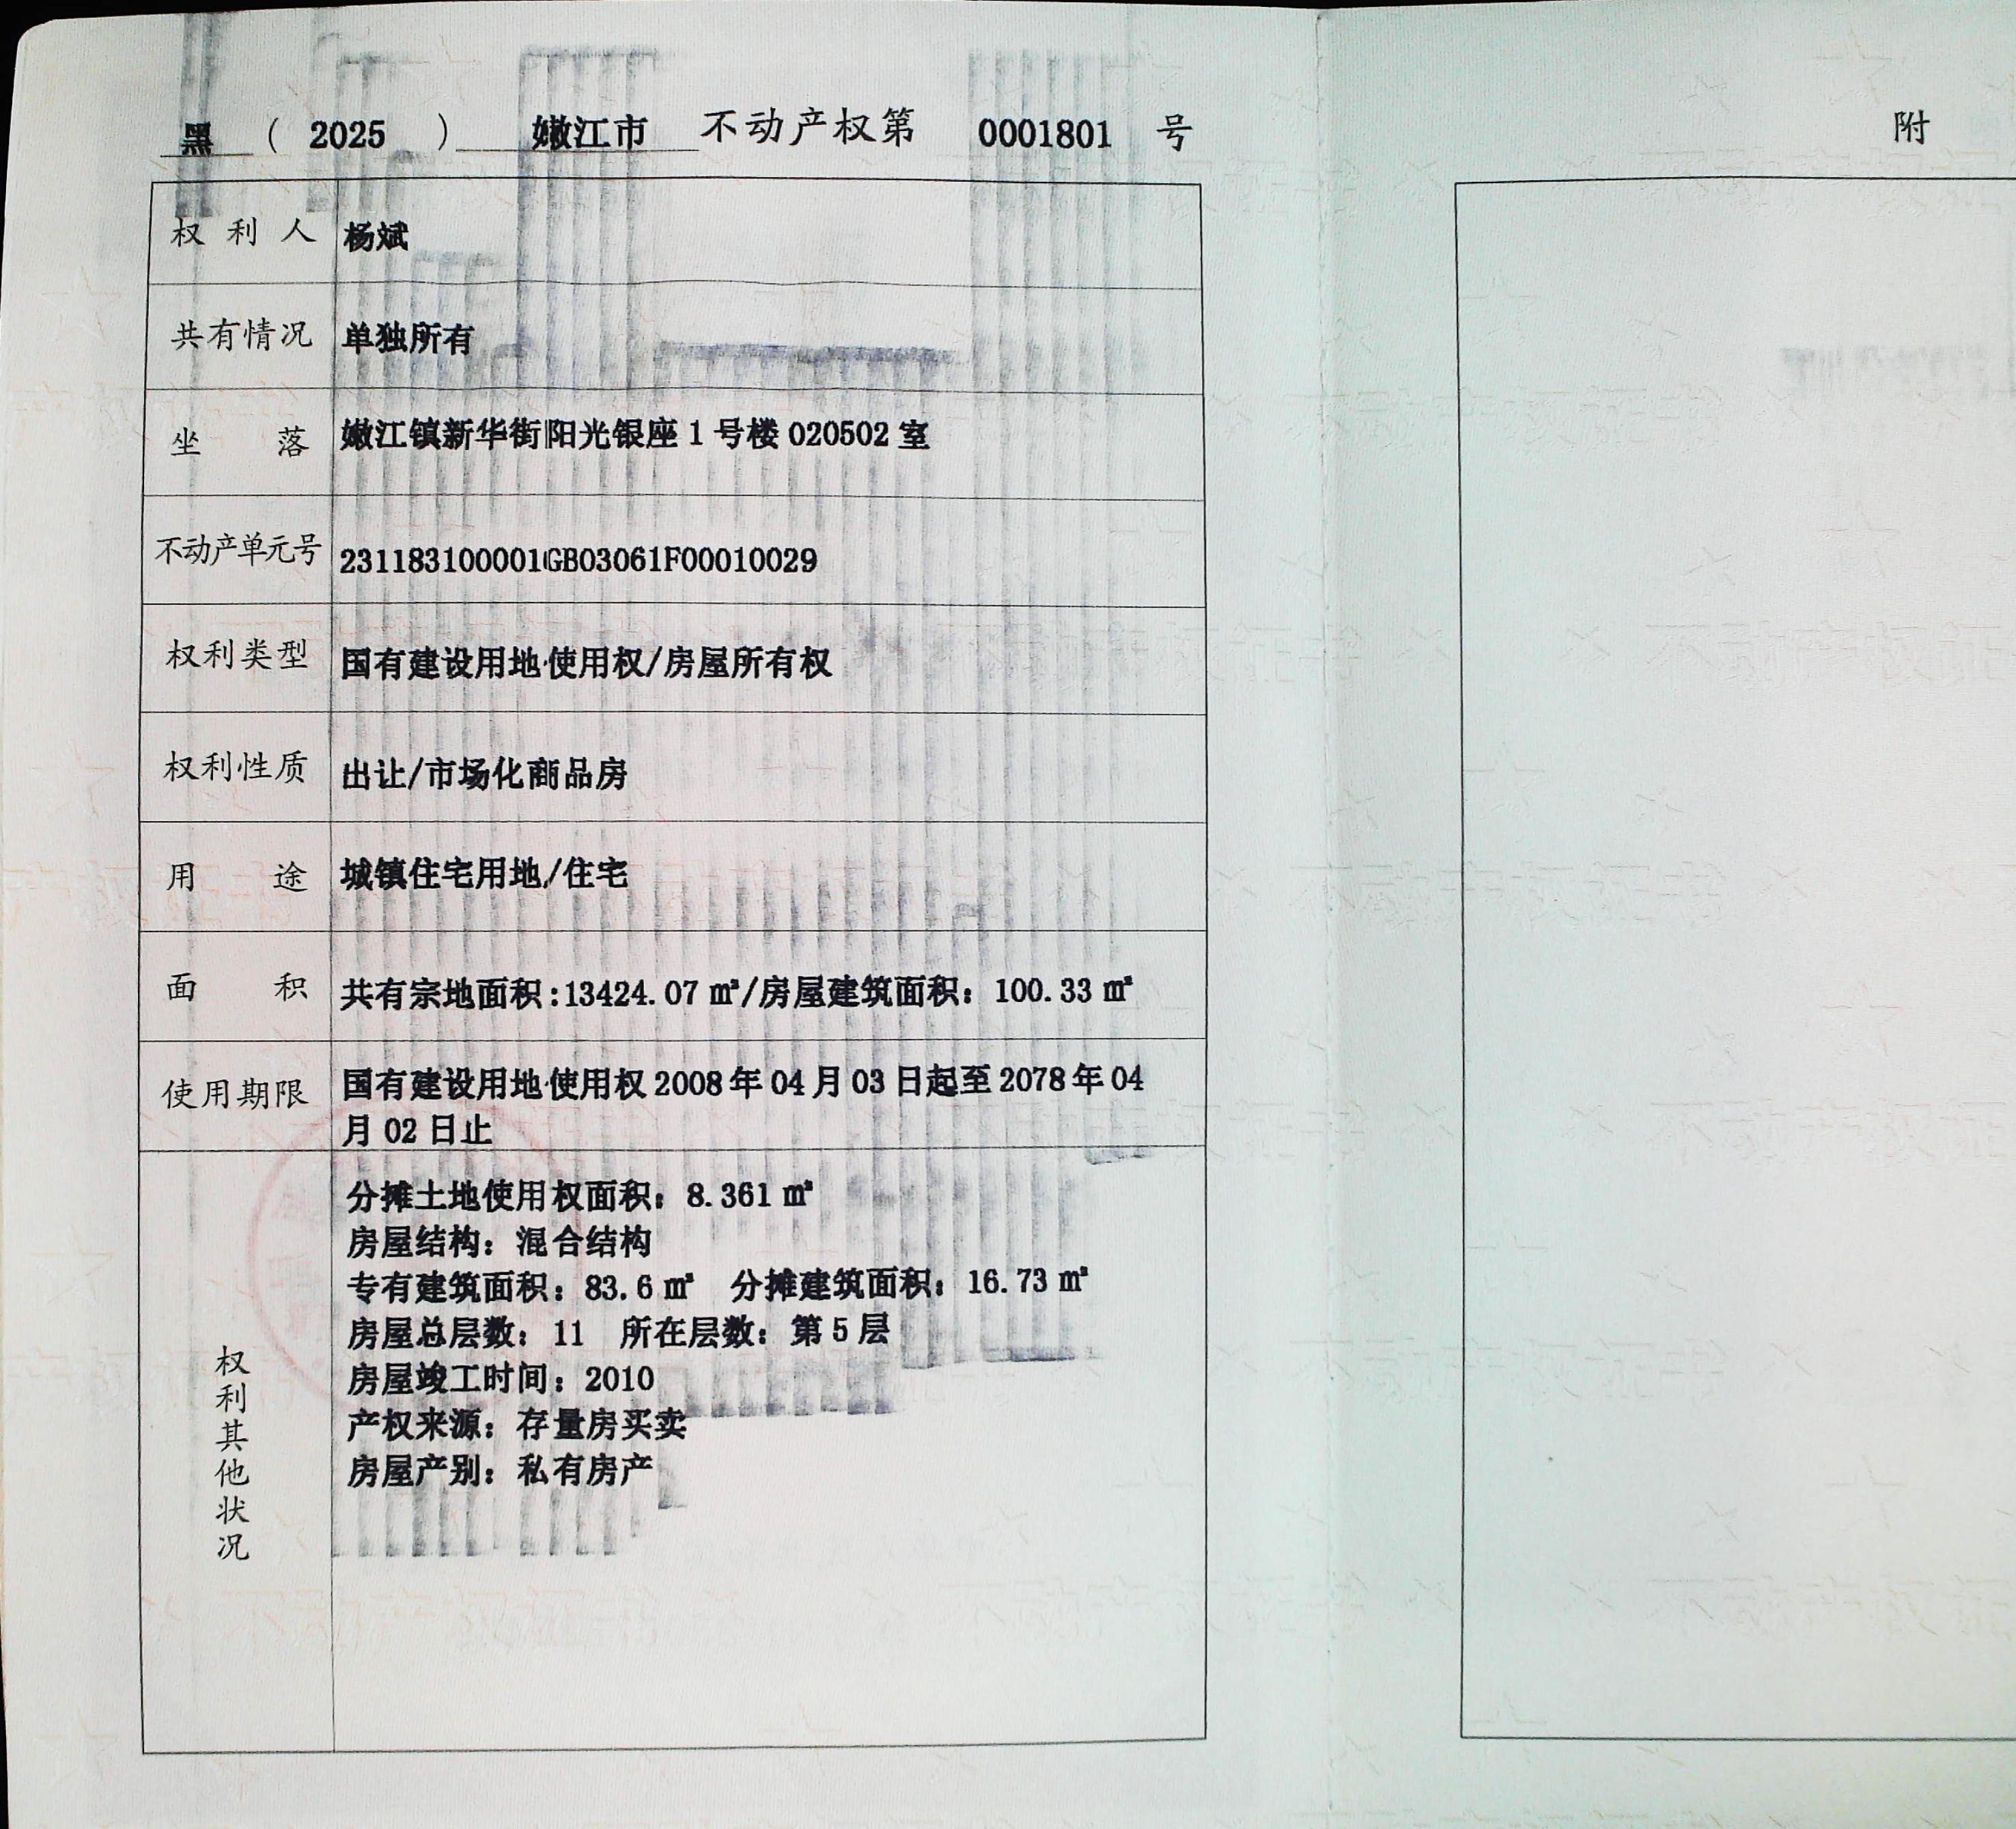 黑 ( 2025 ) 嫩江市 不动产权第 0001801 号
附
权利人 杨斌
共有情况 单独所有
坐落 嫩江镇新华街阳光银座 1 号楼 020502 室
不动产单元号 231183100001GB03061F00010029
权利类型 国有建设用地使用权/房屋所有权
权利性质 出让/市场化商品房
用途 城镇住宅用地/住宅
面积 共有宗地面积:13424.07 ㎡/房屋建筑面积: 100.33 ㎡
使用期限 国有建设用地使用权 2008 年 04 月 03 日起至 2078 年 04
月 02 日止
权利其他状况
分摊土地使用权面积: 8.361 ㎡
房屋结构: 混合结构
专有建筑面积: 83.6 ㎡ 分摊建筑面积: 16.73 ㎡
房屋总层数: 11 所在层数: 第 5 层
房屋竣工时间: 2010
产权来源: 存量房买卖
房屋产别: 私有房产